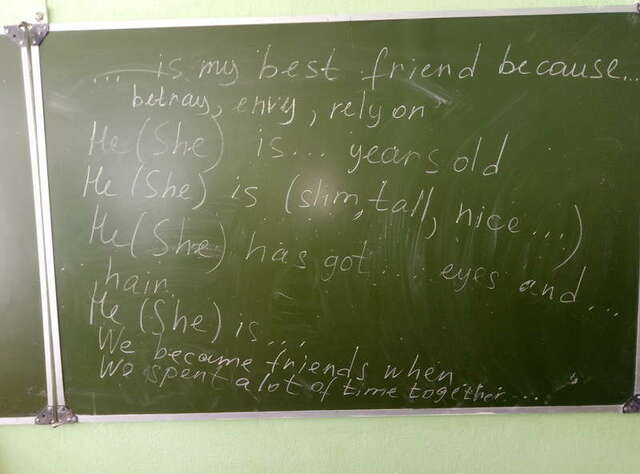 ... is my best friend because...
betray, envy, rely on
He (She) is ... years old
He (She) is (slim, tall, nice ...)
He (She) has got .... eyes and ...
hair
He (She) is ....
We became friends when
We spent a lot of time together ....